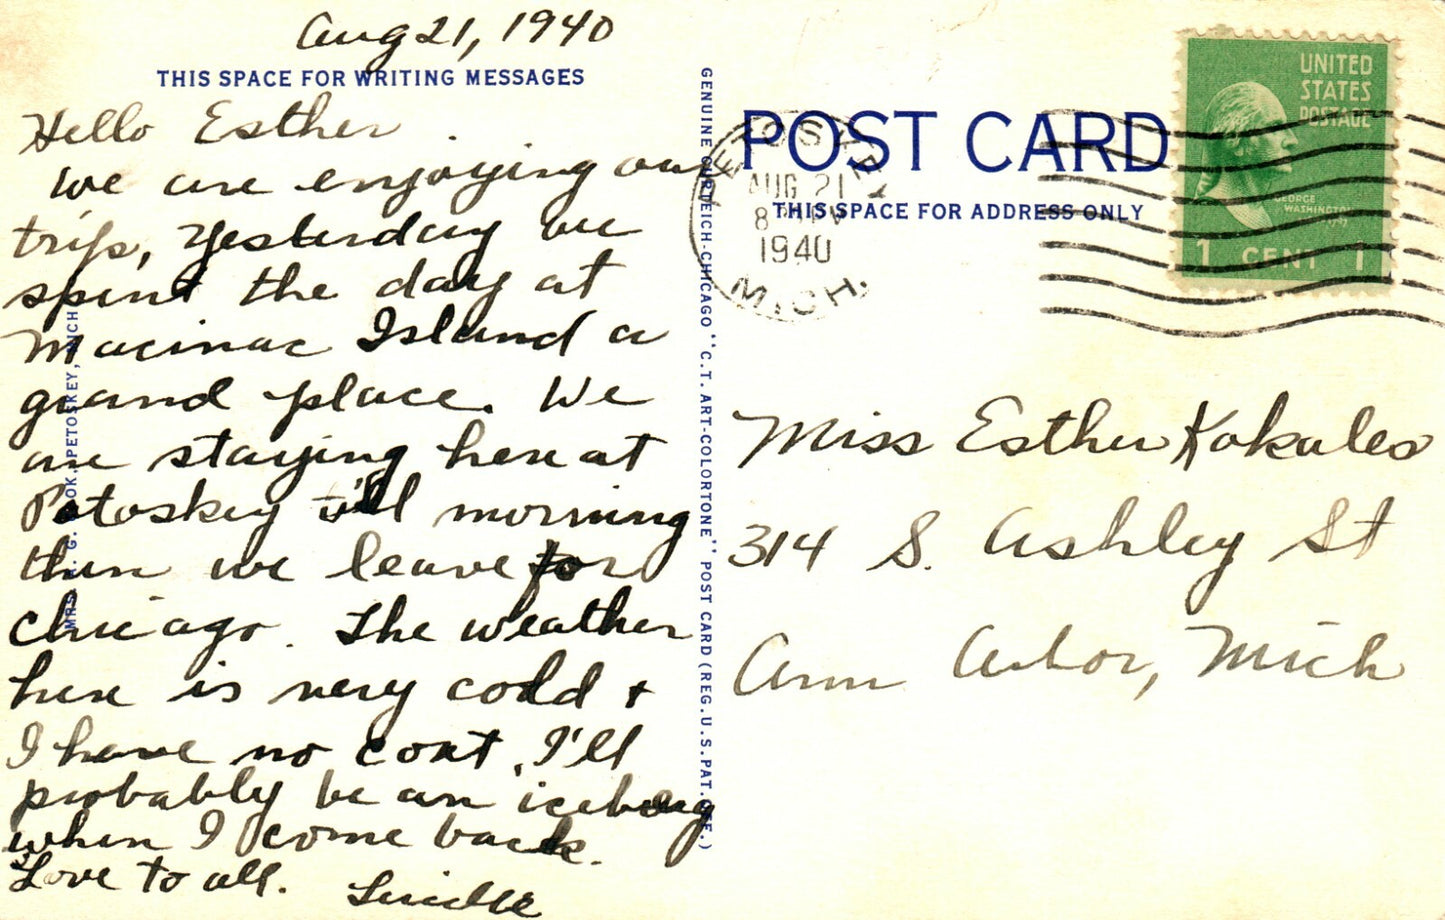 Aug 21, 1940
THIS SPACE FOR WRITING MESSAGES
Hello Esther.
We are enjoying our
trip, Yesterday we
spent the day at
Macinac Island a
grand place. We
are staying here at
Petoskey till morning
then we leave for
Chicago. The weather
here is very cold +
I have no coat, I'll
probably be an iceberg
when I come back.
Love to all. Lucille
PETOSKEY, MICH
GENUINE CURTEICH-CHICAGO "C.T. ART-COLORTONE" POST CARD (REG. U.S. PAT. OFF.)
POST CARD
THIS SPACE FOR ADDRESS ONLY
PETOSKEY
AUG 21
8
1940
MICH.
UNITED
STATES
POSTAGE
GEORGE
WASHINGTON
1 CENT 1
Miss Esther Kokales
314 S. Ashley St
Ann Arbor, Mich